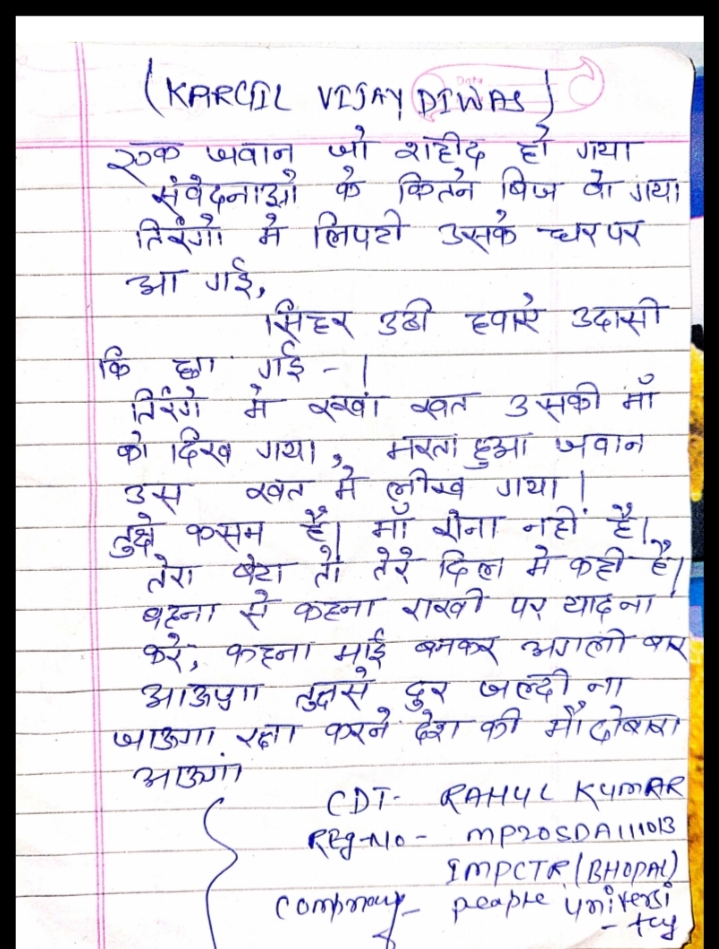 (KARGIL VIJAY DIWAS)
Date
एक जवान जो शहीद हो गया
संवेदनाओ के कितने बिज बो गया
तिरंगो मे लिपटी उसके घर पर
आ गई,
सिहर उठी हवाऐ उदासी
कि छा गई - |
तिरंगे मे रखा खत उसकी माँ
को दिख गया, मरता हुआ जवान
उस खत मे लीख गया |
तुझे कसम है| माँ रोना नहीं है|
तेरा बेटा तो तेरे दिल मे कही है|
बहना से कहना राखी पर याद ना
करे, कहना भाई बनकर अगली बार
आऊगा तुझसे दुर जल्दी ना
जाऊगा रक्षा करने देश की माँ दोबारा
आऊगां
CDT- RAHUL KUMAR
Reg-No - MP20SDA111013
1MPCTR (BHOPAL)
Compnay- peaple universi
- ty